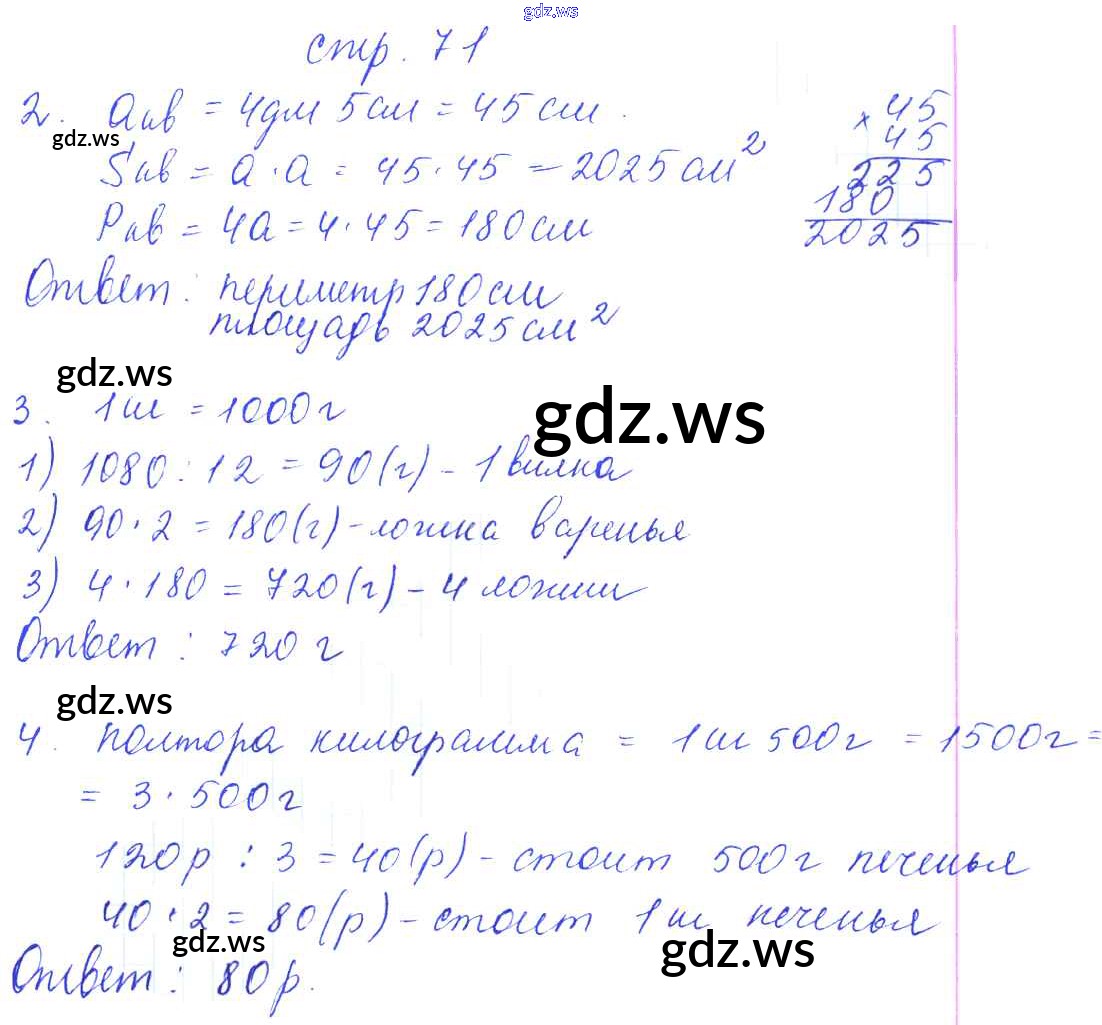 gdz.ws
стр. 71
2. aкв = 4дм 5см = 45см.
gdz.ws
Sкв = a · a = 45 · 45 = 2025см²
Pкв = 4a = 4 · 45 = 180см
× 45
45
225
180
2025
Ответ: периметр 180см
площадь 2025см²
gdz.ws
3. 1кг = 1000г
gdz.ws
1) 1080 : 12 = 90(г) - 1 вилка
2) 90 · 2 = 180(г) - ложка варенья
3) 4 · 180 = 720(г) - 4 ложки
Ответ: 720 г
gdz.ws
4. Полтора килограмма = 1кг 500г = 1500г =
= 3 · 500г
120р : 3 = 40(р) - стоит 500г печенья
40 · 2 = 80(р) - стоит 1кг печенья
gdz.ws
gdz.ws
Ответ: 80р.